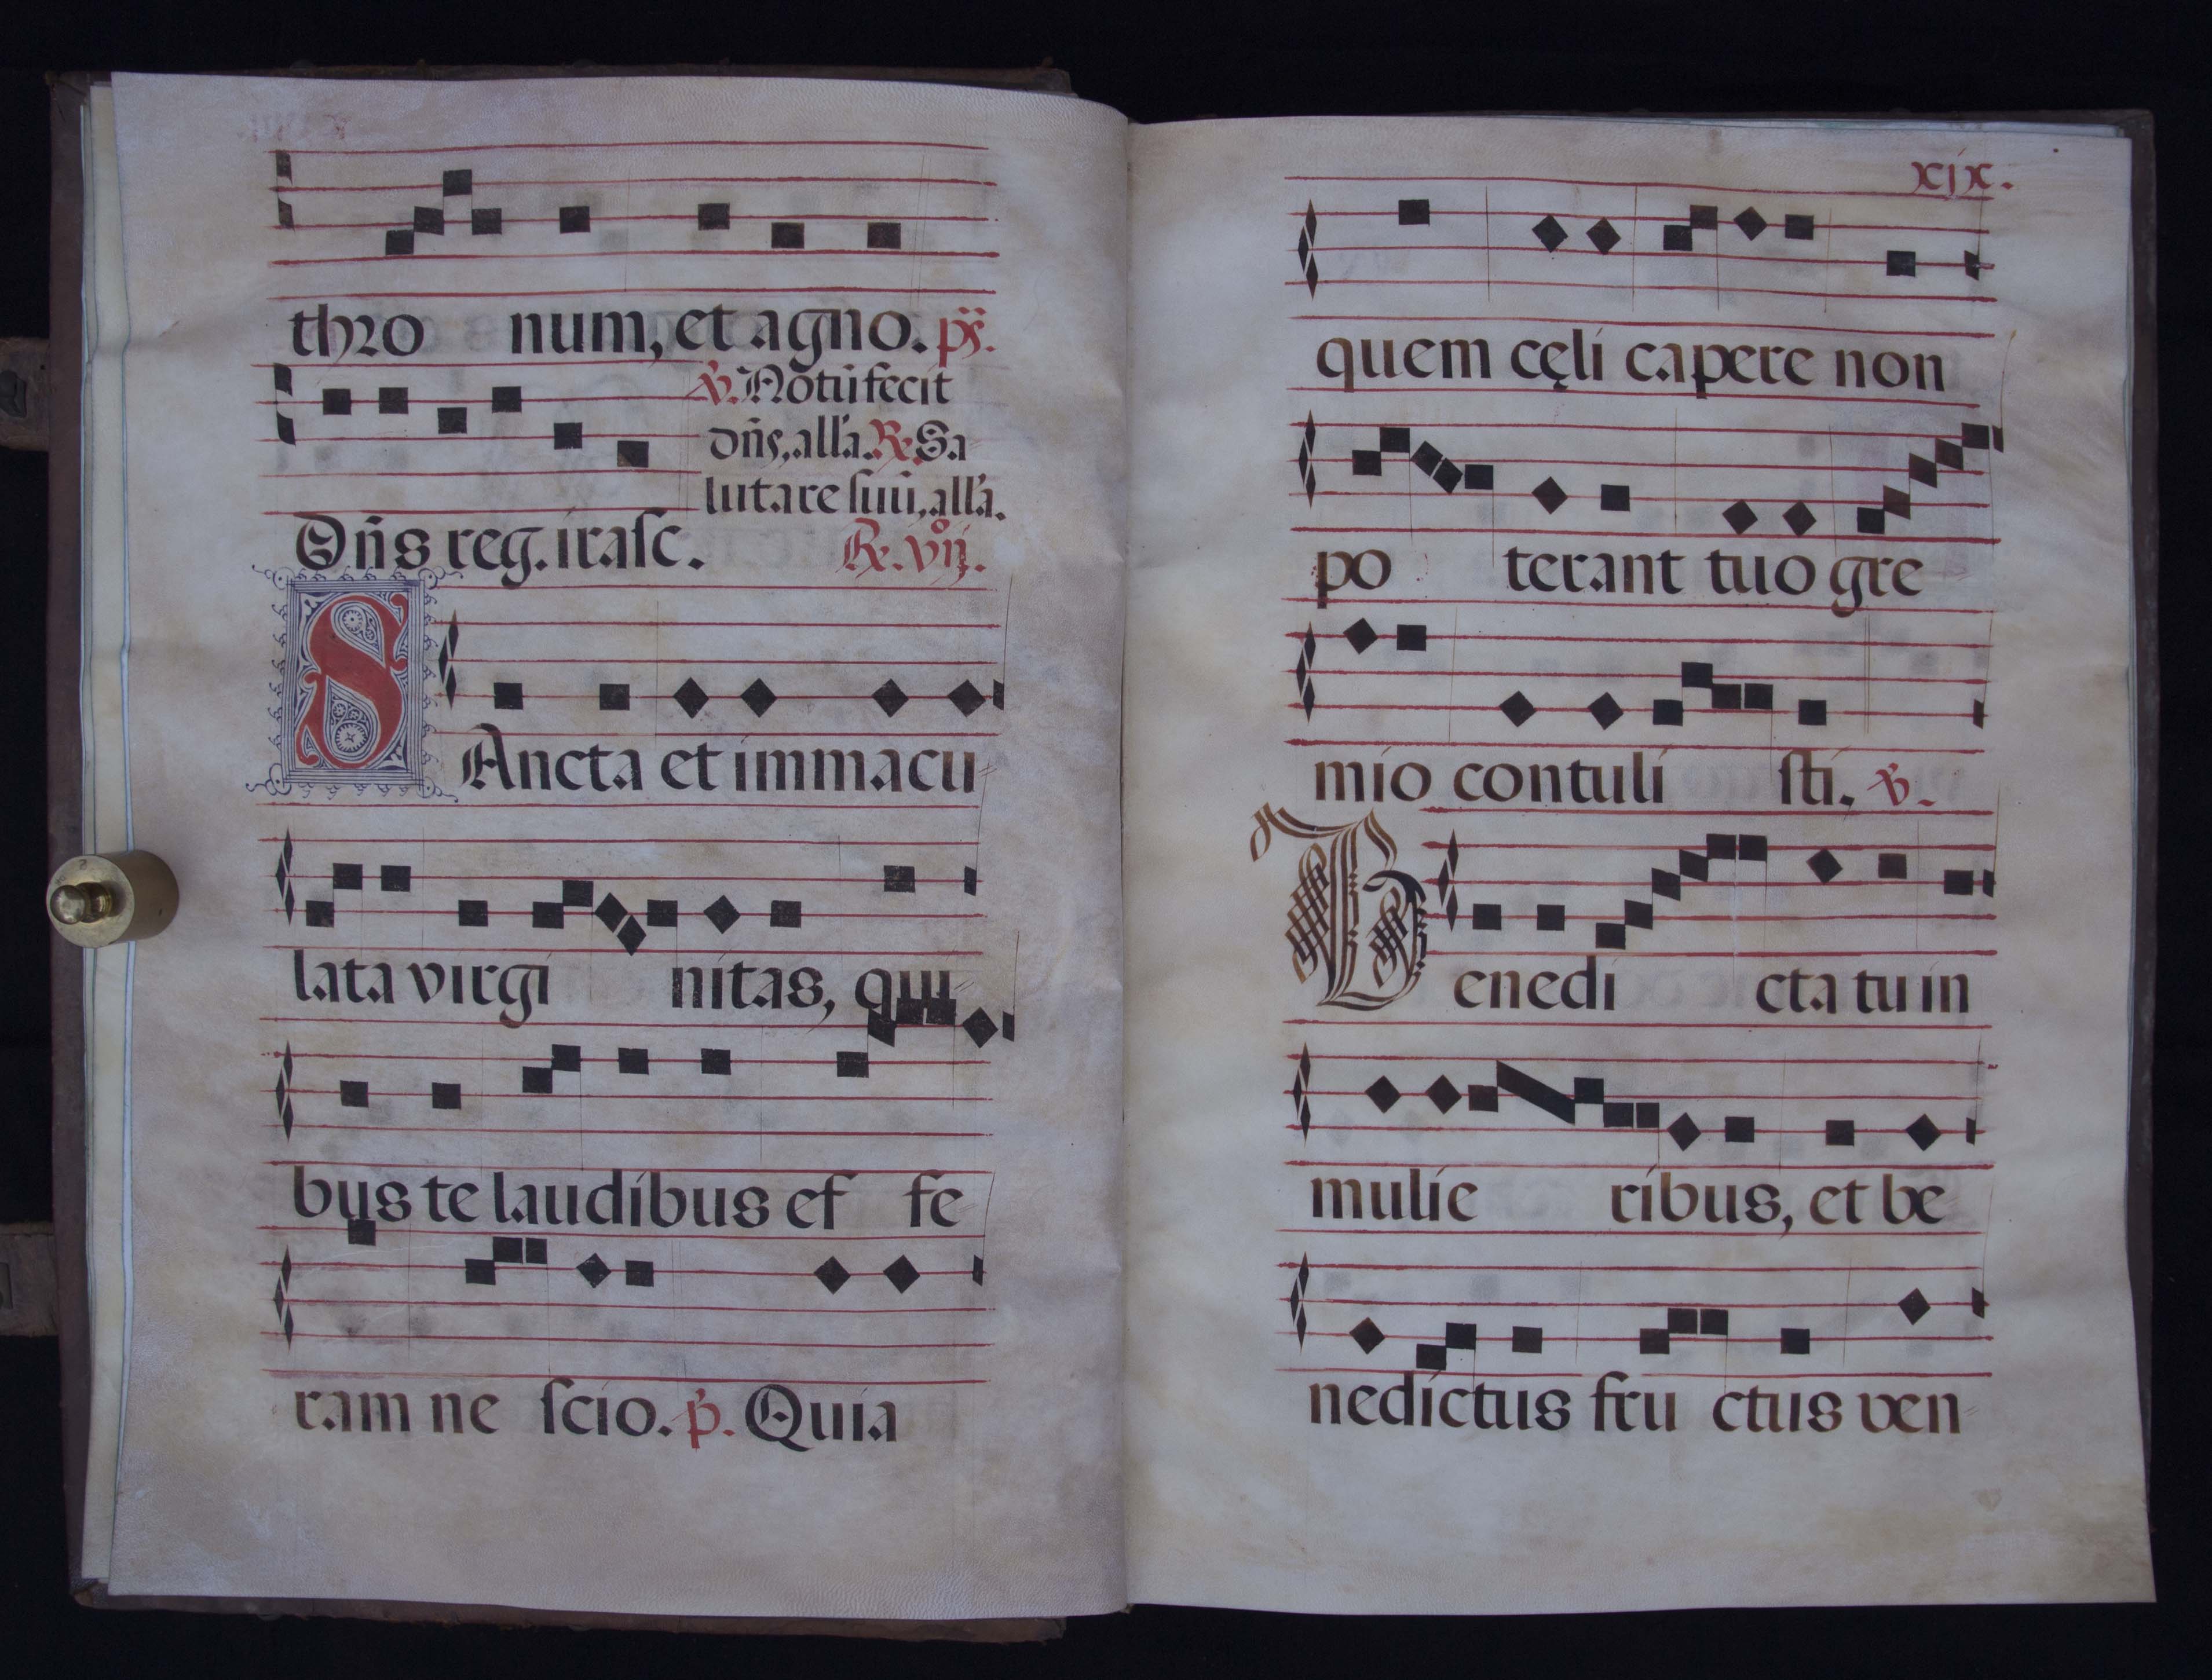 thro num, et agno. ps.
℣. Notū fecit
dn̄s, alľa. ℟. Sa
lutare suū, alľa.
Dn̄s reg. irasc. ℟. vij.
SAncta et immacu
lata virgi nitas, qui
bus te laudibus ef fe
ram ne scio. p. Quia
xix.
quem cęli capere non
po terant tuo gre
mio contuli sti. ℣.
Benedi cta tu in
mulie ribus, et be
nedictus fru ctus ven